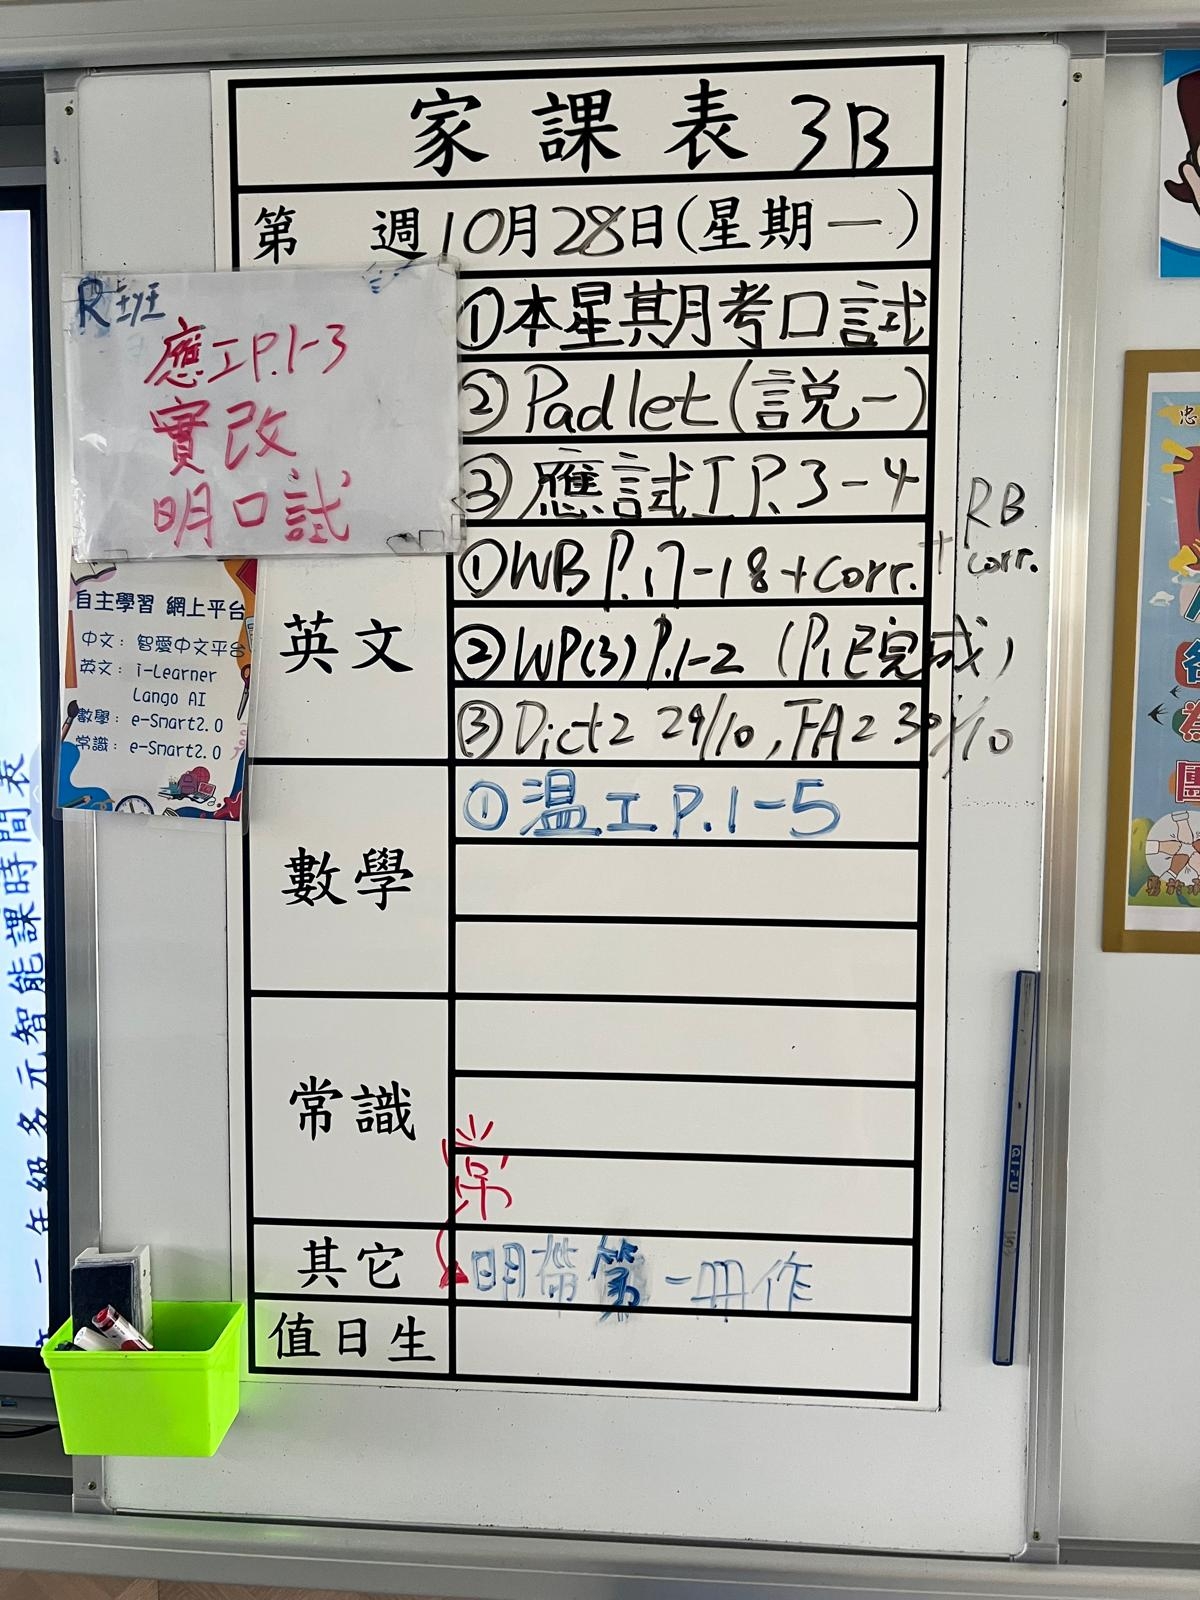 家課表 3B
第 週 10月28日(星期一)
①本星其月考口試
②Padlet(説一)
③應試工P.3-4
R班
應工P.1-3
實改
明口試
英文
①WB P.17-18+corr. + RB corr.
②WP(3) P.1-2 (P.1E完成)
③Dict2 29/10, FA2 30/10
數學
①温工P.1-5
常識
其它
明帶第一冊作
值日生
自主學習 網上平台
中文: 智愛中文平台
英文: i-Learner
Lango AI
數學: e-Smart2.0
常識: e-Smart2.0
一年級多元智能課時間表
QIFU